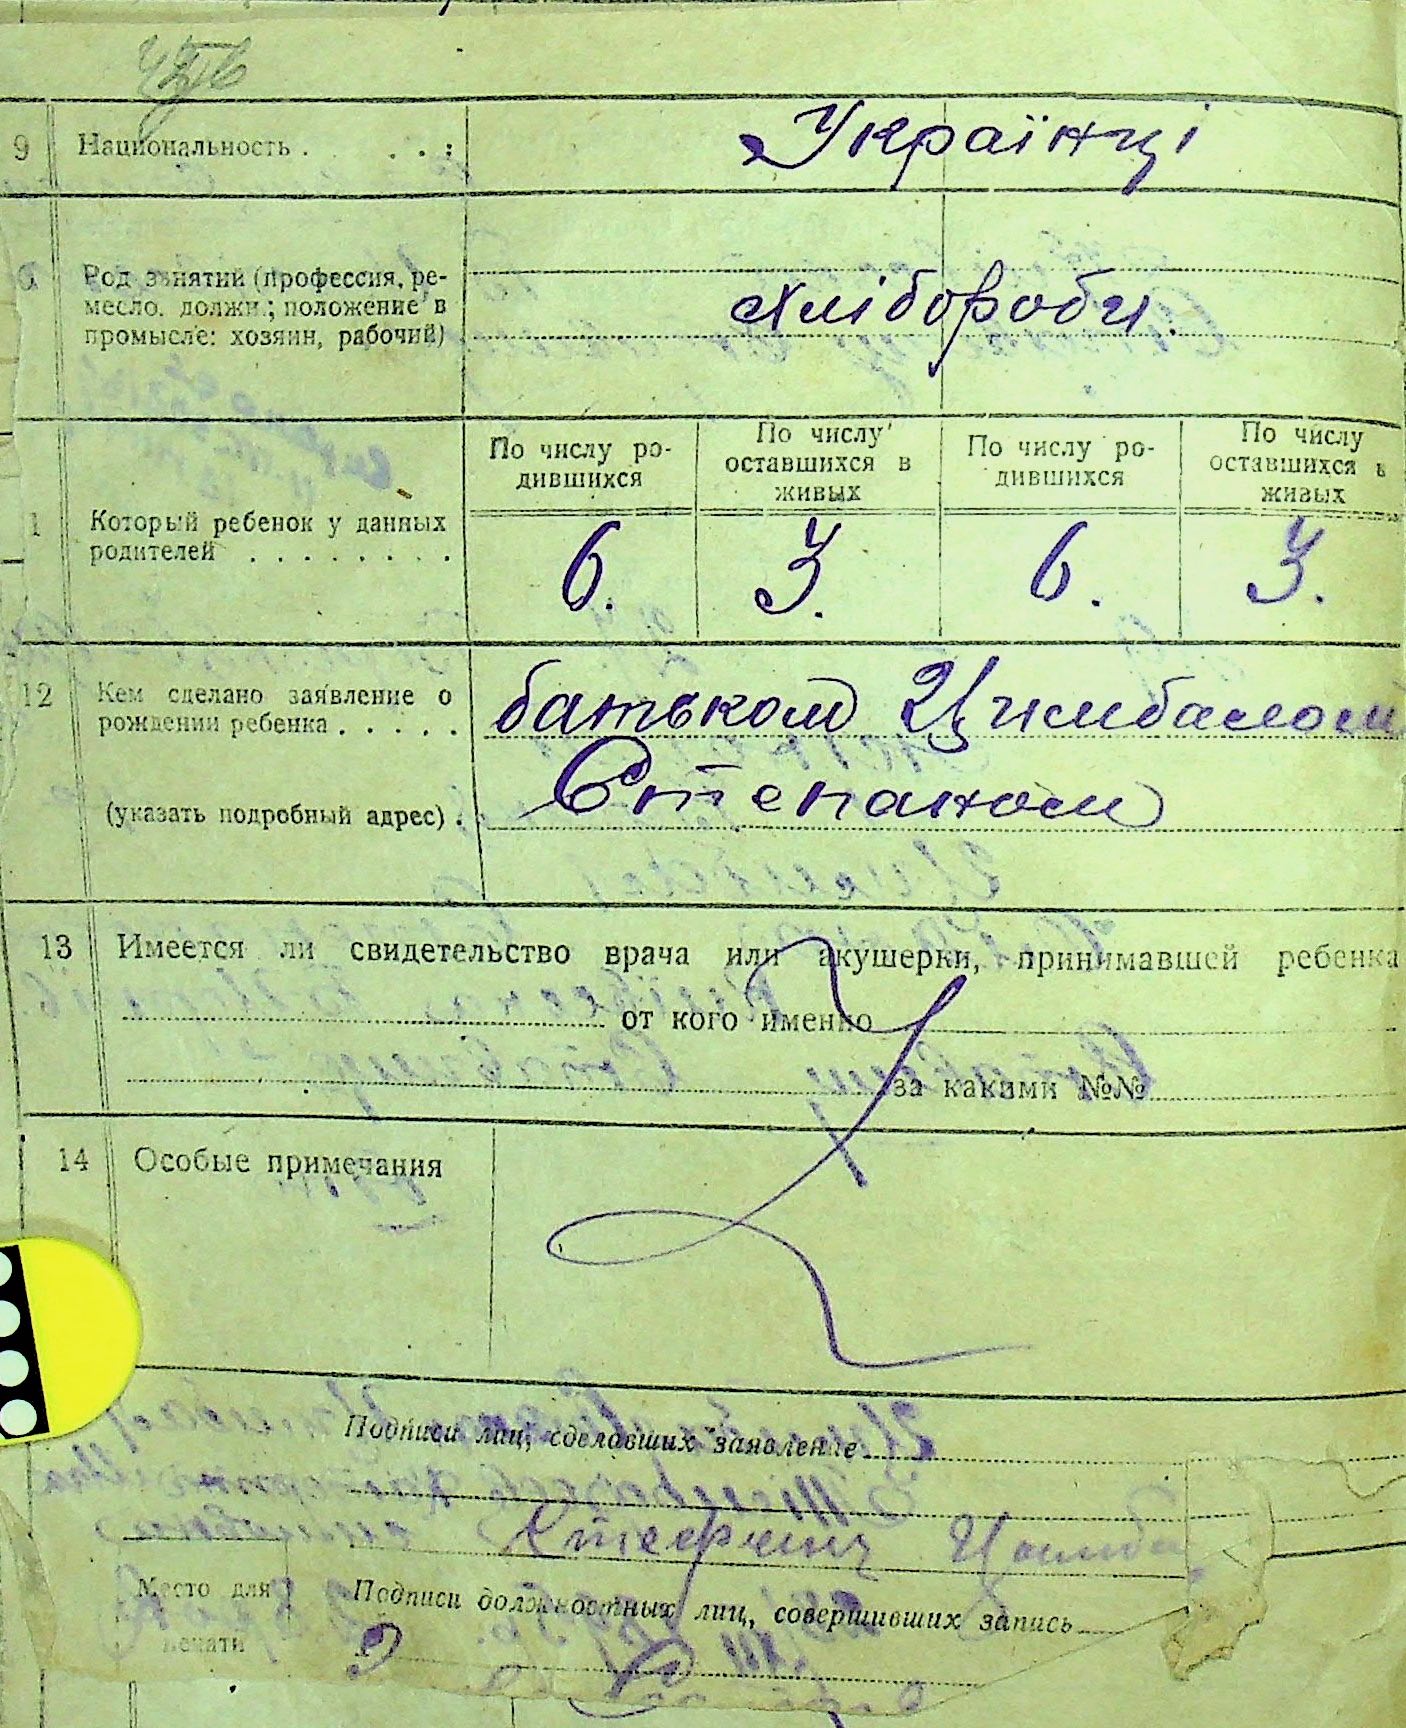 9 Национальность . . . :
Українці
Род занятий (профессия, ре-
месло. должн.; положение в
промысле: хозяин, рабочий)
хлібороби.
По числу ро-
дившихся
По числу
оставшихся в
живых
По числу ро-
дившихся
По числу
оставшихся в
живых
1 Который ребенок у данных
родителей . . . . . . . .
6. 3. 6. 3.
12 Кем сделано заявление о
рождении ребенка . . . . .
батьком Цимбалом
Степаном
(указать подробный адрес) .
13 Имеется ли свидетельство врача или акушерки, принимавшей ребенка
от кого именно
за какими №№
14 Особые примечания
Подписи лиц, сделавших заявление
Место для
печати
Подписи должностных лиц, совершивших запись